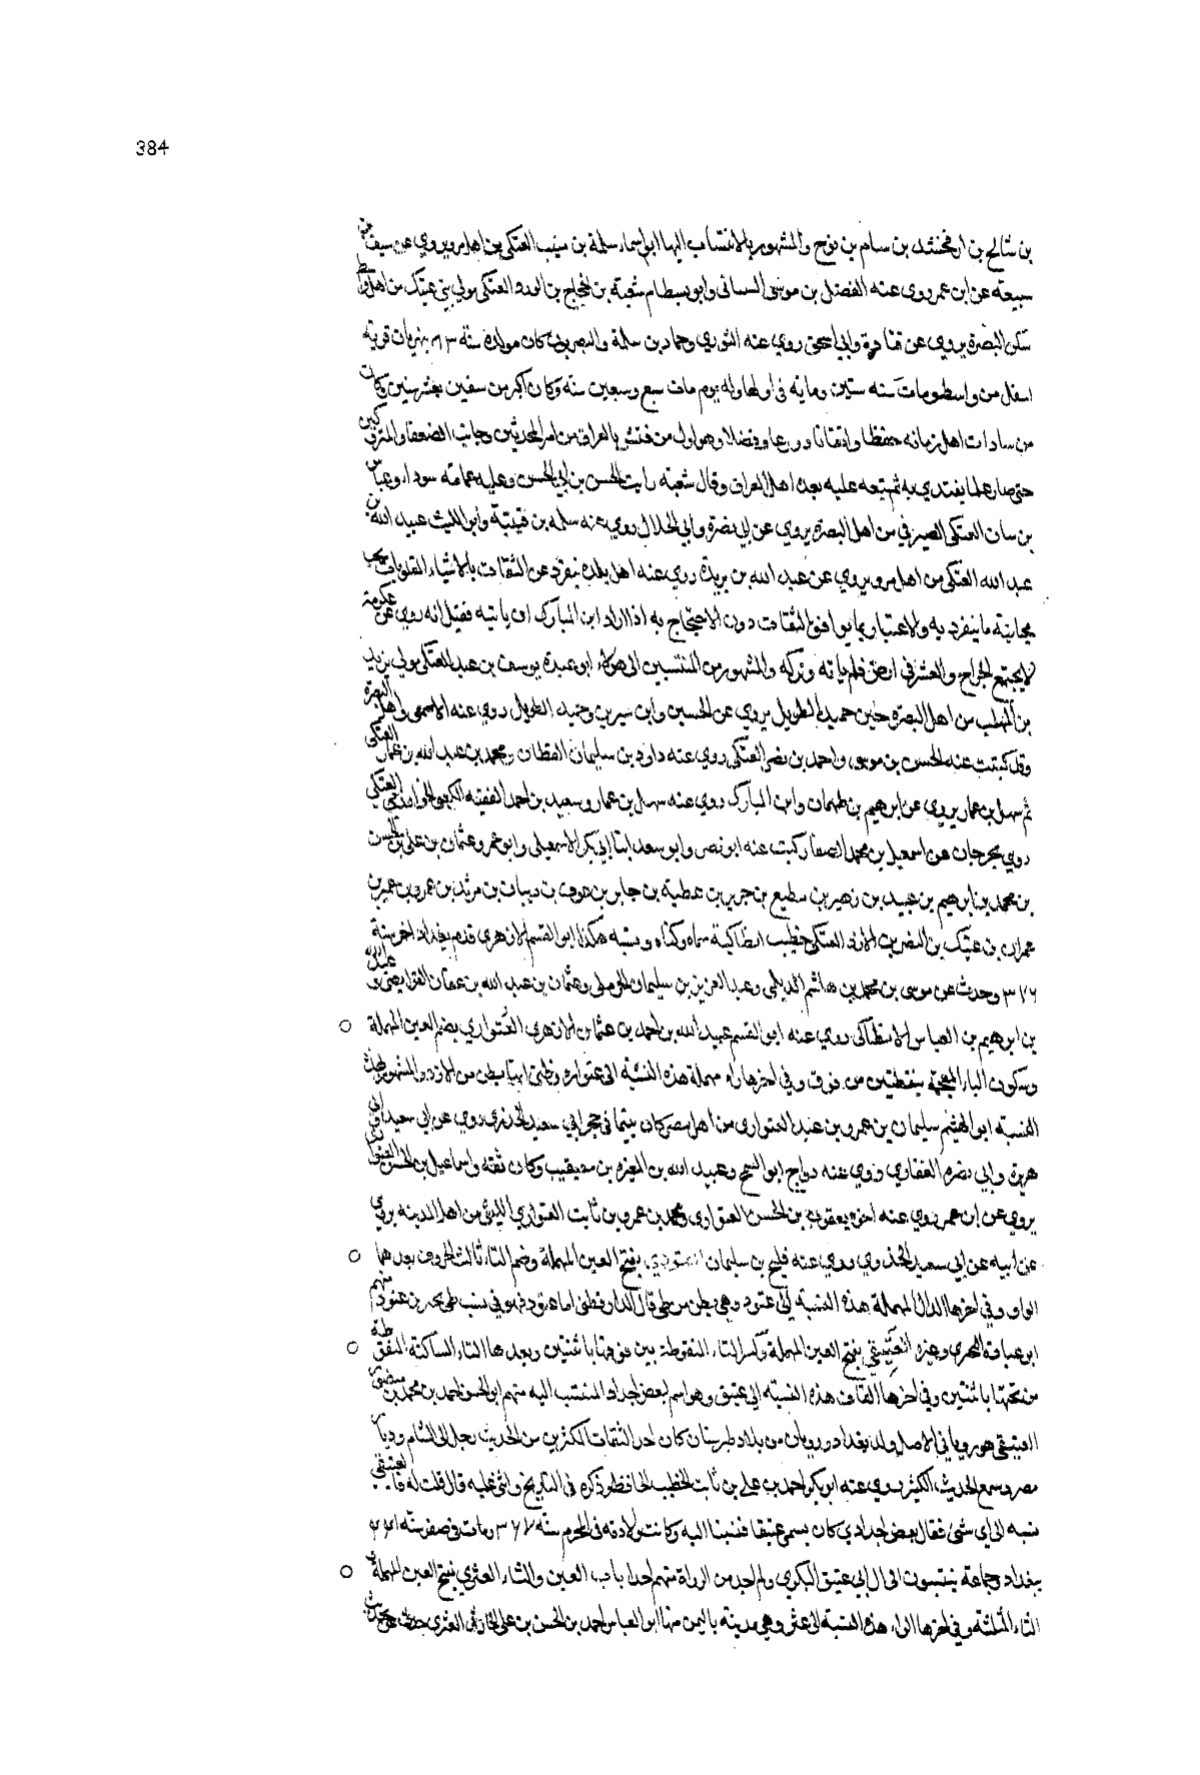 384
بن شالخ بن ارفخشد بن سام بن نوح والمشهور بالانتساب اليها ابو اسماء سلمة بن منيب العتكي من اهل مرو يروي عن سيف بن
سبيعه عن ابن عمر روى عنه الفضل بن موسى السيناني وابو بسطام شعبة بن الحجاج بن الورد العتكي مولى بني عتيك من اهل واسط
سكن البصرة يروي عن قتادة وابي اسحق روي عنه الثوري وحماد بن سلمة والبصريون كان مولده سنة ٨٣ بنهربان قرية
اسفل من واسط ومات سنه ستين ومايه في اولها وله يوم مات سبع وسبعين سنة وكان اكبر من سفين بعشر سنين وكان
من سادات اهل زمانه حفظا واتقانا وورعا وفضلا وهو اول من فتش بالعراق من امر المحدثين وجانب الضعفا والمتروكين
حتى صار علما يقتدي به ثم تبعه عليه بعده اهل العراق وقال شعبة رايت الحسن بن ابي الحسن وعليه عمامة سوداء وعباس
بن سنان العتكي الصيرفي من اهل البصرة يروي عن ابي نضرة وابي الحلال روي عنه سلمه بن قتيبة وابو الليث عبيد الله بن
عبد الله العتكي من اهل مرو يروي عن عبد الله بن بريدة روي عنه اهل بلده ينفرد عن الثقات بالاشياء المقلوبات يجب
مجانبة ما ينفرد به والاعتبار بما يوافق الثقات دون الاحتجاج به اذا اراد ابن المبارك ان ياتيه فقيل انه روي عن عكرمة
لا يجتمع الخراج والعشر في ارض فلم ياته وتركه والمشهور من المنتسبين الى هولاء ابو عبدة يوسف بن عبد العتكي مولى يزيد
بن المهلب من اهل البصرة ختن حميد الطويل يروي عن الحسين وابن سيرين وحميد الطويل روي عنه الاصمعي واهل البصرة
وقد كتبت عنه الحسن بن موسى واحمد بن نصر العتكي روي عنه داود بن سليمان القطان ومحمد بن عبد الله بن عمار العتكي
ثم سهل بن عمار يروي عن ابرهيم بن طهمان وابن المبارك روي عنه سهل بن عمار وسعيد بن احمد الفقيه العتكي
روي بجرجان عن اسمعيل بن محمد الصفار كتبت عنه ابو نصر وابو سعد ابنا ابي بكر الاسمعيلي وابو عمرو عثمان بن علي بن الحسن
بن محمد بن ابرهيم بن عبيد بن زهير بن مطيع بن جرير بن عطية بن جابر بن عوف بن ذبيان بن مرثد بن عمرو بن عمير بن
عمران بن عتيك بن النضر بن الازد العتكي خطيب انطاكية سماه وكناه ونسبه هكذا ابو القسم الازهري قدم بغداد اخر سنة
٣٧٦ وحدث عن موسى بن محمد بن هاشم الديلمي وعبد العزيز بن سليمان الحرملي وعثمان بن عبد الله بن عفان الفرايضي وعبد الله
بن ابرهيم بن العباس الانطاكي روي عنه ابو القسم عبيد الله بن احمد بن عثمان الازهري العتواري بضم العين المهملة ○
وسكون التاء المعجمة بنقطتين من فوق وفي اخرها راء مهملة هذه النسبة الى عتوارة وظني انها بطن من الازد والمشهور بهذه
النسبة ابو الهيثم سليمان بن عمرو بن عبد العتواري من اهل مصر كان يتيما في حجر ابي سعيد الخدري روي عن ابي سعيد وابي
هريرة وابي بصرة الغفاري روي عنه دراج ابو السمح وعبيد الله بن المغيرة بن معيقيب وكان ثقة واسماعيل بن الحسن العتواري
يروي عن ابن عمر روي عنه اخوه يعقوب بن الحسن العتواري ومحمد بن عمرو بن ثابت العتواري الليثي من اهل المدينه يروي
عن ابيه عن ابي سعيد الخدري روي عنه فليح بن سليمان العتودي بفتح العين المهملة وضم التاء ثالث الحروف بعدها ○
الواو وفي اخرها الدال المهملة هذه النسبة الى عتود وهي بطن من طي قال الدارقطني اما عتود فهو في نسب طي بحتر بن عتود منهم
ابو عبادة البحتري وغيره العتيقي بفتح العين المهملة وكسر التاء المنقوطة بين فوقها باثنتين وبعدها التاء الساكنة المنقوطة ○
من تحتها باثنتين وفي اخرها القاف هذه النسبة الى عتيق وهو اسم لبعض اجداد المنتسب اليه منهم ابو الحسن احمد بن محمد بن منصور
العتيقي هو روياني الاصل ولد ببغداد ورويان من بلاد طبرستان كان احد الثقات المكثرين من الحديث رحل الى الشام وديار
مصر وسمع الحديث الكثير روي عنه ابو بكر احمد بن علي بن ثابت الخطيب الحافظ وذكره في التاريخ واثنى عليه قال قلت له فالعتيقي
نسبه الى اي شئ فقال بعض اجدادي كان يسمى عتيقا فنسبنا اليه وكانت ولادته في المحرم سنة ٣٦٧ ومات في صفر سنة ٤٤١
ببغداد وجماعة ينتسبون الى ال ابي عتيق البكري ولم اجد من الرواة منهم احدا باب العين والثاء العثري بفتح العين المهملة ○
الثاء المثلثة وفي اخرها الراء هذه النسبة الى عثر وهي مدينة باليمن منها ابو العباس احمد بن الحسن بن علي الحارثي العثري حدث